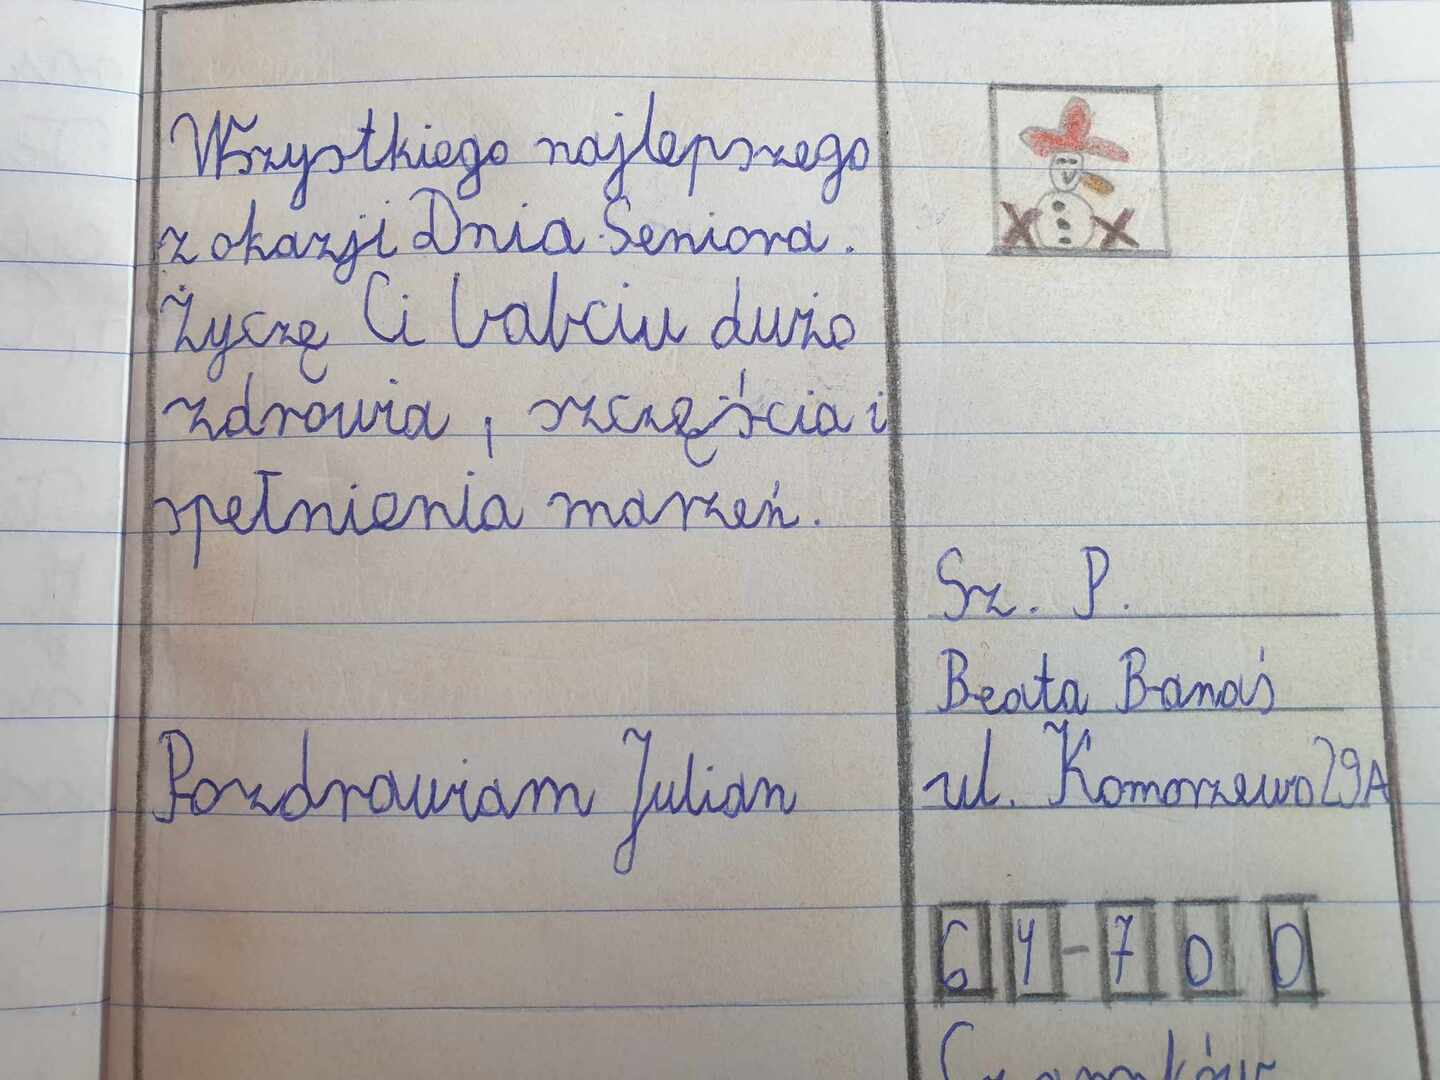 Wszystkiego najlepszego
z okazji Dnia Seniora.
Życzę Ci babciu dużo
zdrowia, szczęścia i
spełnienia marzeń.
Pozdrawiam Julian
Sz. P.
Beata Banaś
ul. Komorzewo 29A
64-700
Czarnków